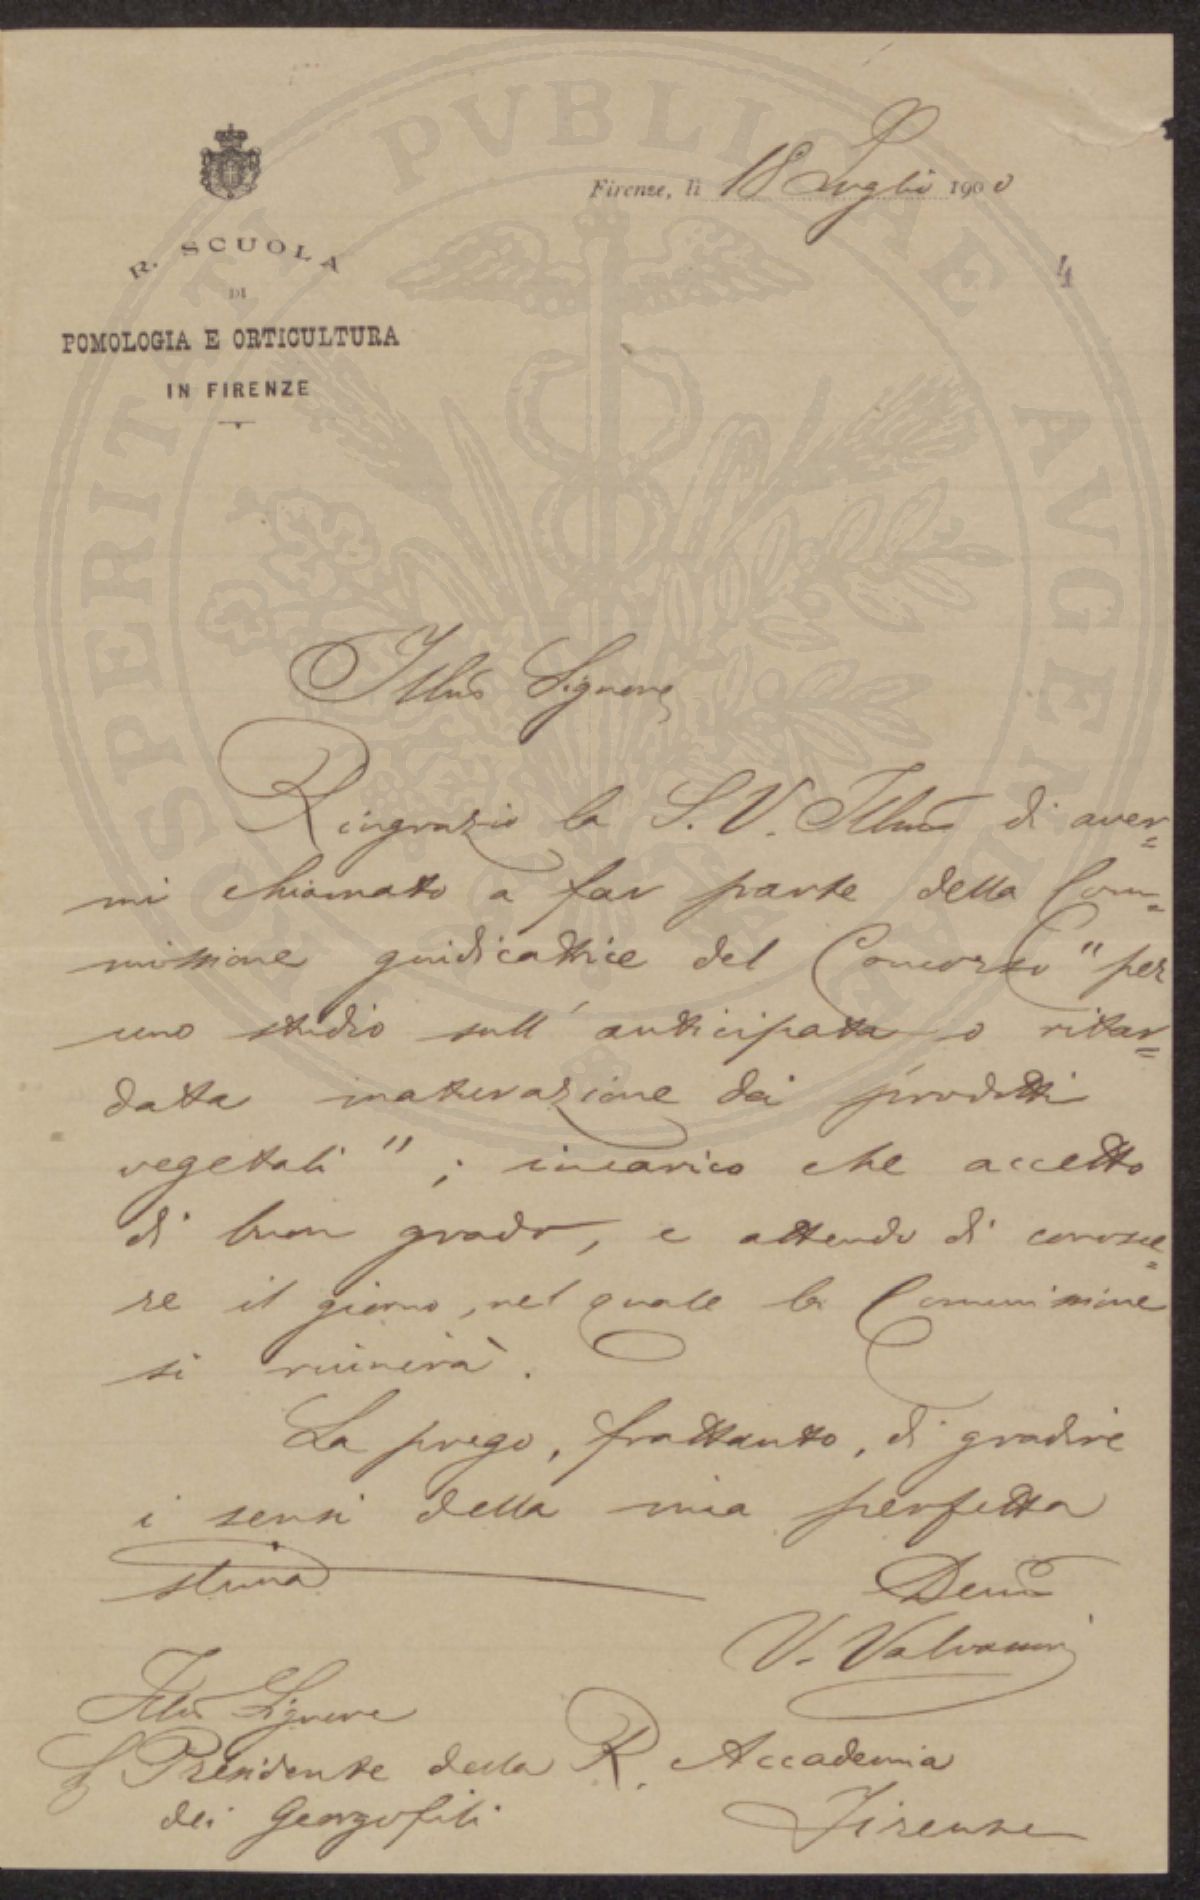 Firenze, lì 18 Luglio 1900
4
R. SCUOLA
DI
POMOLOGIA E ORTICULTURA
IN FIRENZE
Illmo Signore
Ringrazio la S. V. Illma di aver=
mi chiamato a far parte della Com=
missione giudicatrice del Concorso "per
uno studio sull'anticipata o ritar=
data maturazione dei prodotti
vegetali"; incarico che accetto
di buon grado, e attendo di conosce=
re il giorno, nel quale la Commissione
si riunirà.
La prego, frattanto, di gradire
i sensi della mia perfetta
stima
Devmo
V. Valvassori
Illmo Signore
Presidente della R. Accademia
dei Georgofili
Firenze
PROSPERITATI PVBLICAE AVGENDAE